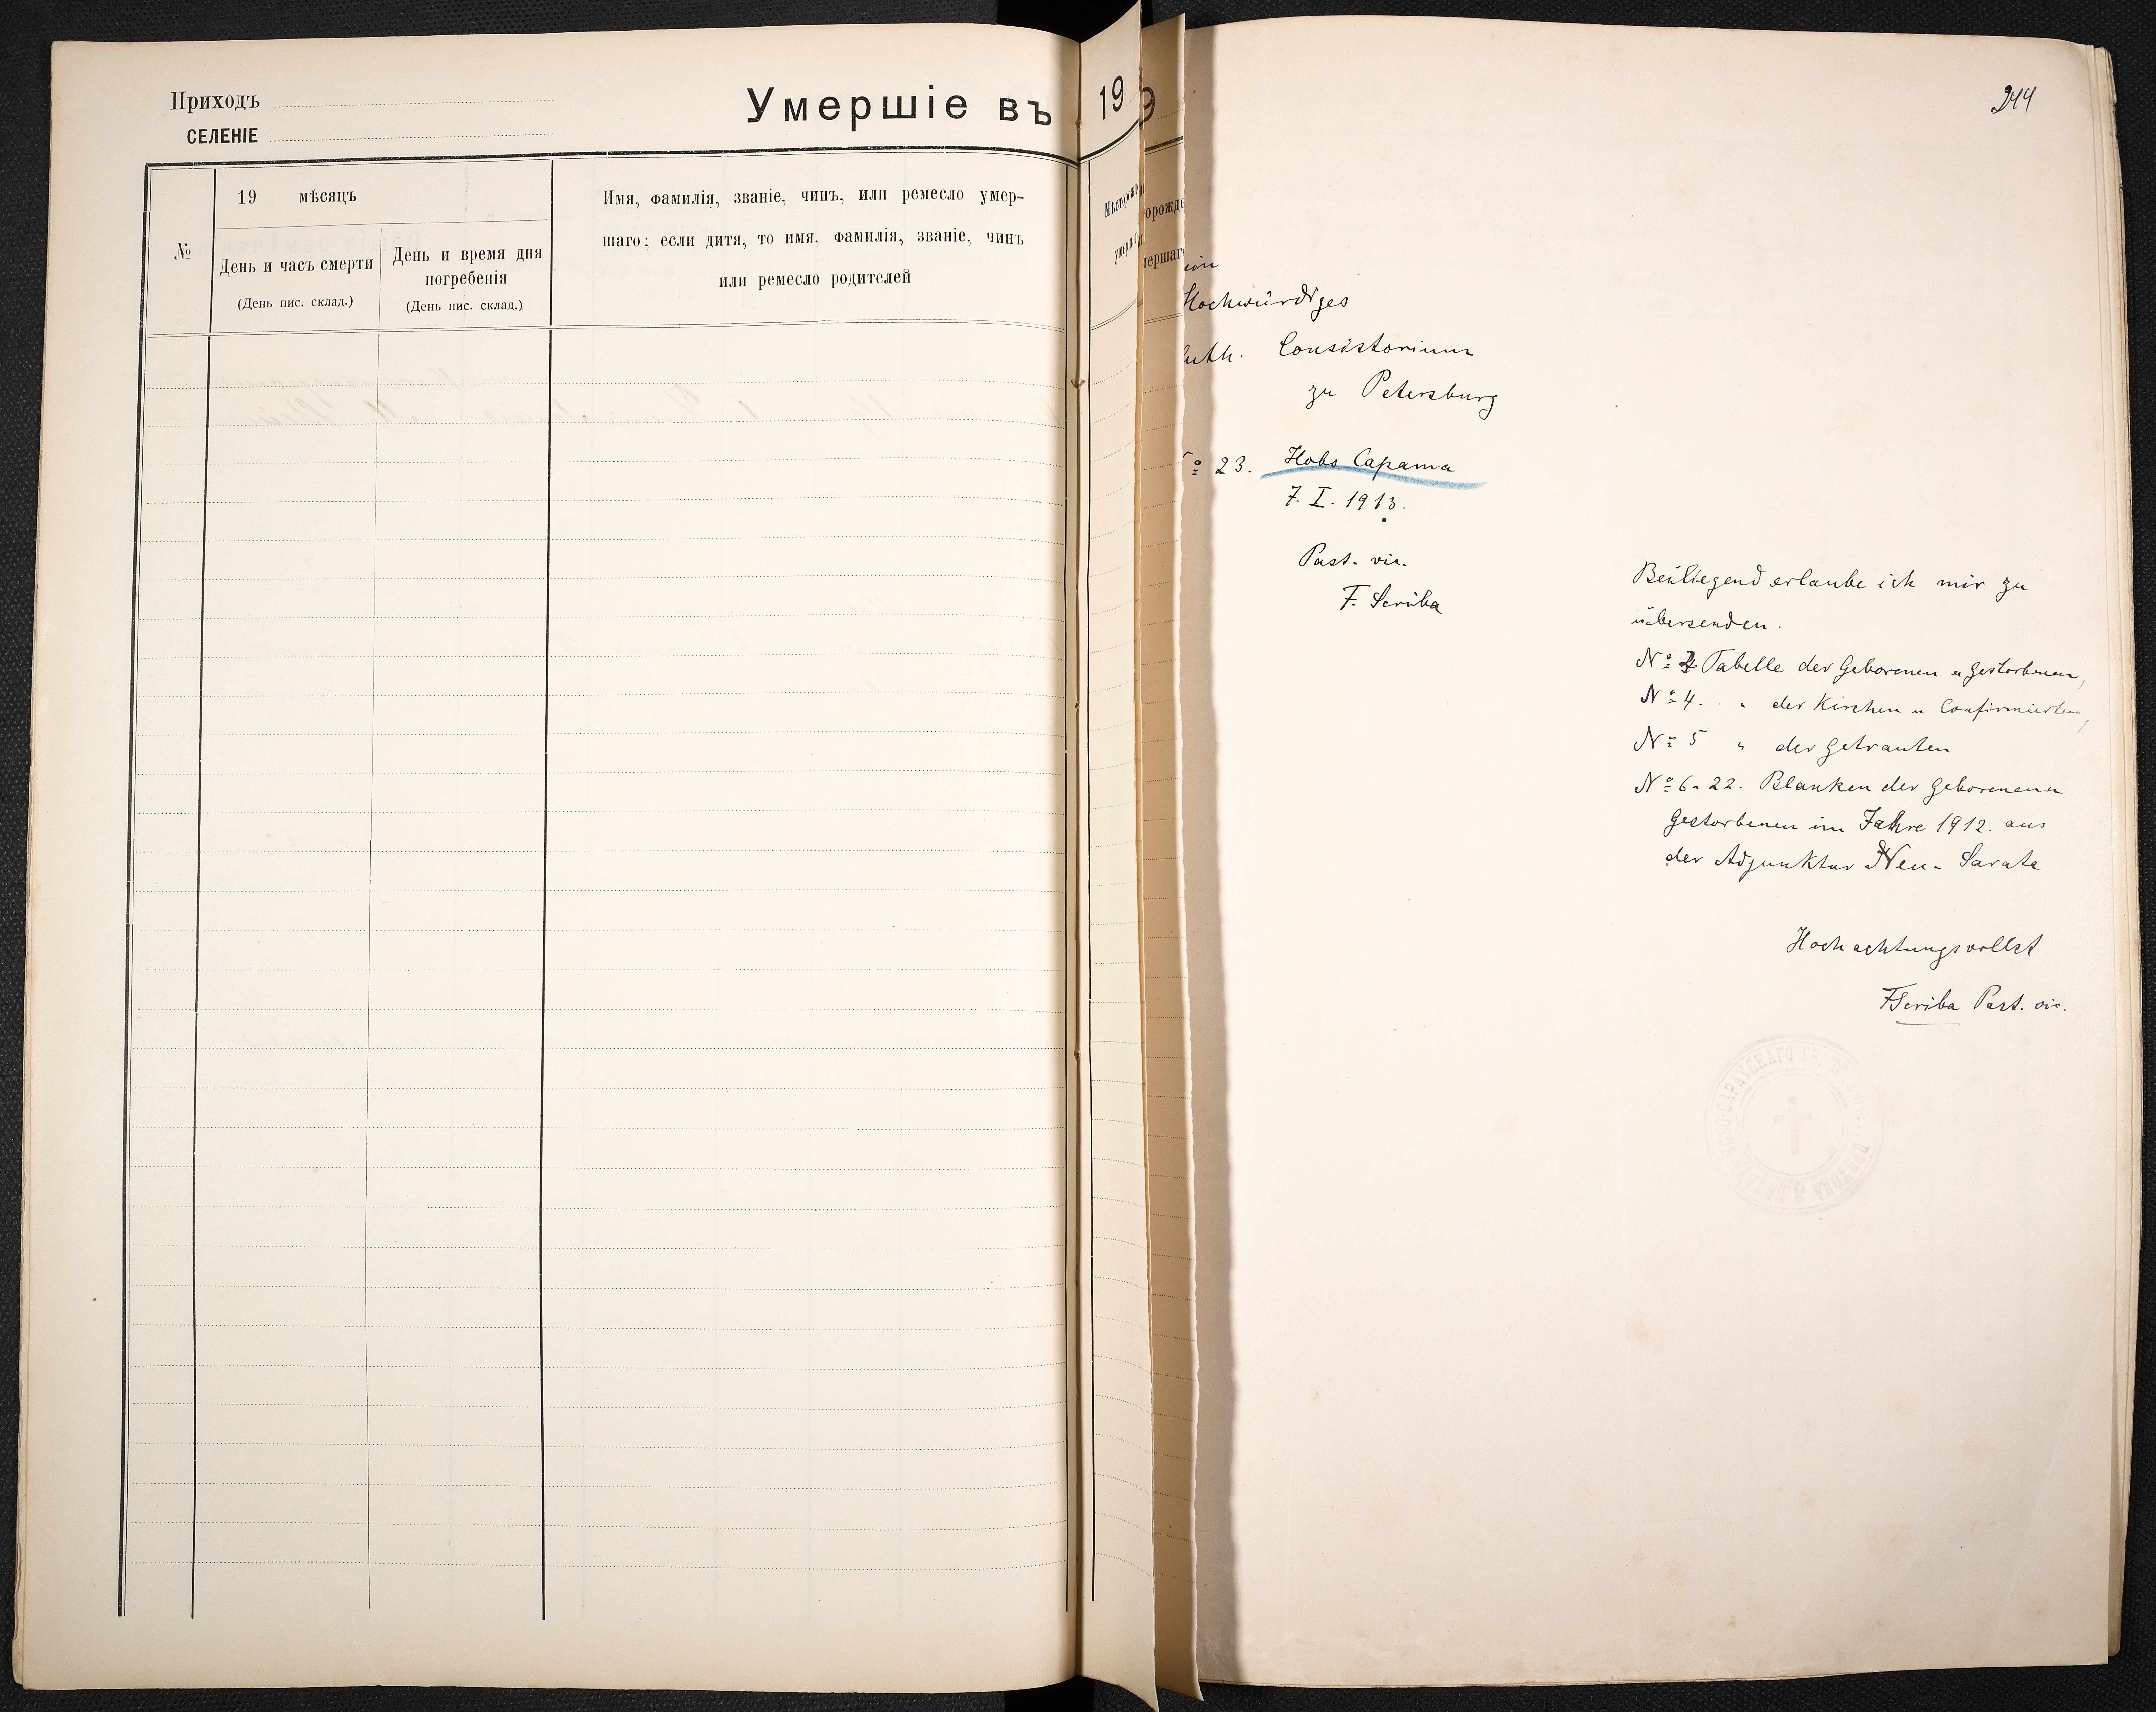 Приходъ
СЕЛЕНІЕ
Умершіе въ 19
№
19 мѣсяцъ
День и часъ смерти
(День пис. склад.)
День и время дня
погребенія
(День пис. склад.)
Имя, фамилія, званіе, чинъ, или ремесло умер-
шаго; если дитя, то имя, фамилія, званіе, чинъ
или ремесло родителей
9
244
ein
Hochwürdiges
Luth. Consistorium
zu Petersburg
№ 23. Ново Сарата
7. I. 1913.
Past. vic.
F. Scriba
Beiliegend erlaube ich mir zu
übersenden.
№ Tabelle der Geborenen u Gestorbenen,
№ 4. " der Kirchen u Confirmierten,
№ 5 " der Getrauten
№ 6-22. Blanken der Geborenen u
Gestorbenen im Jahre 1912. aus
der Adjunktur Neu-Sarata
Hochachtungsvollst
FScriba Past. vic.